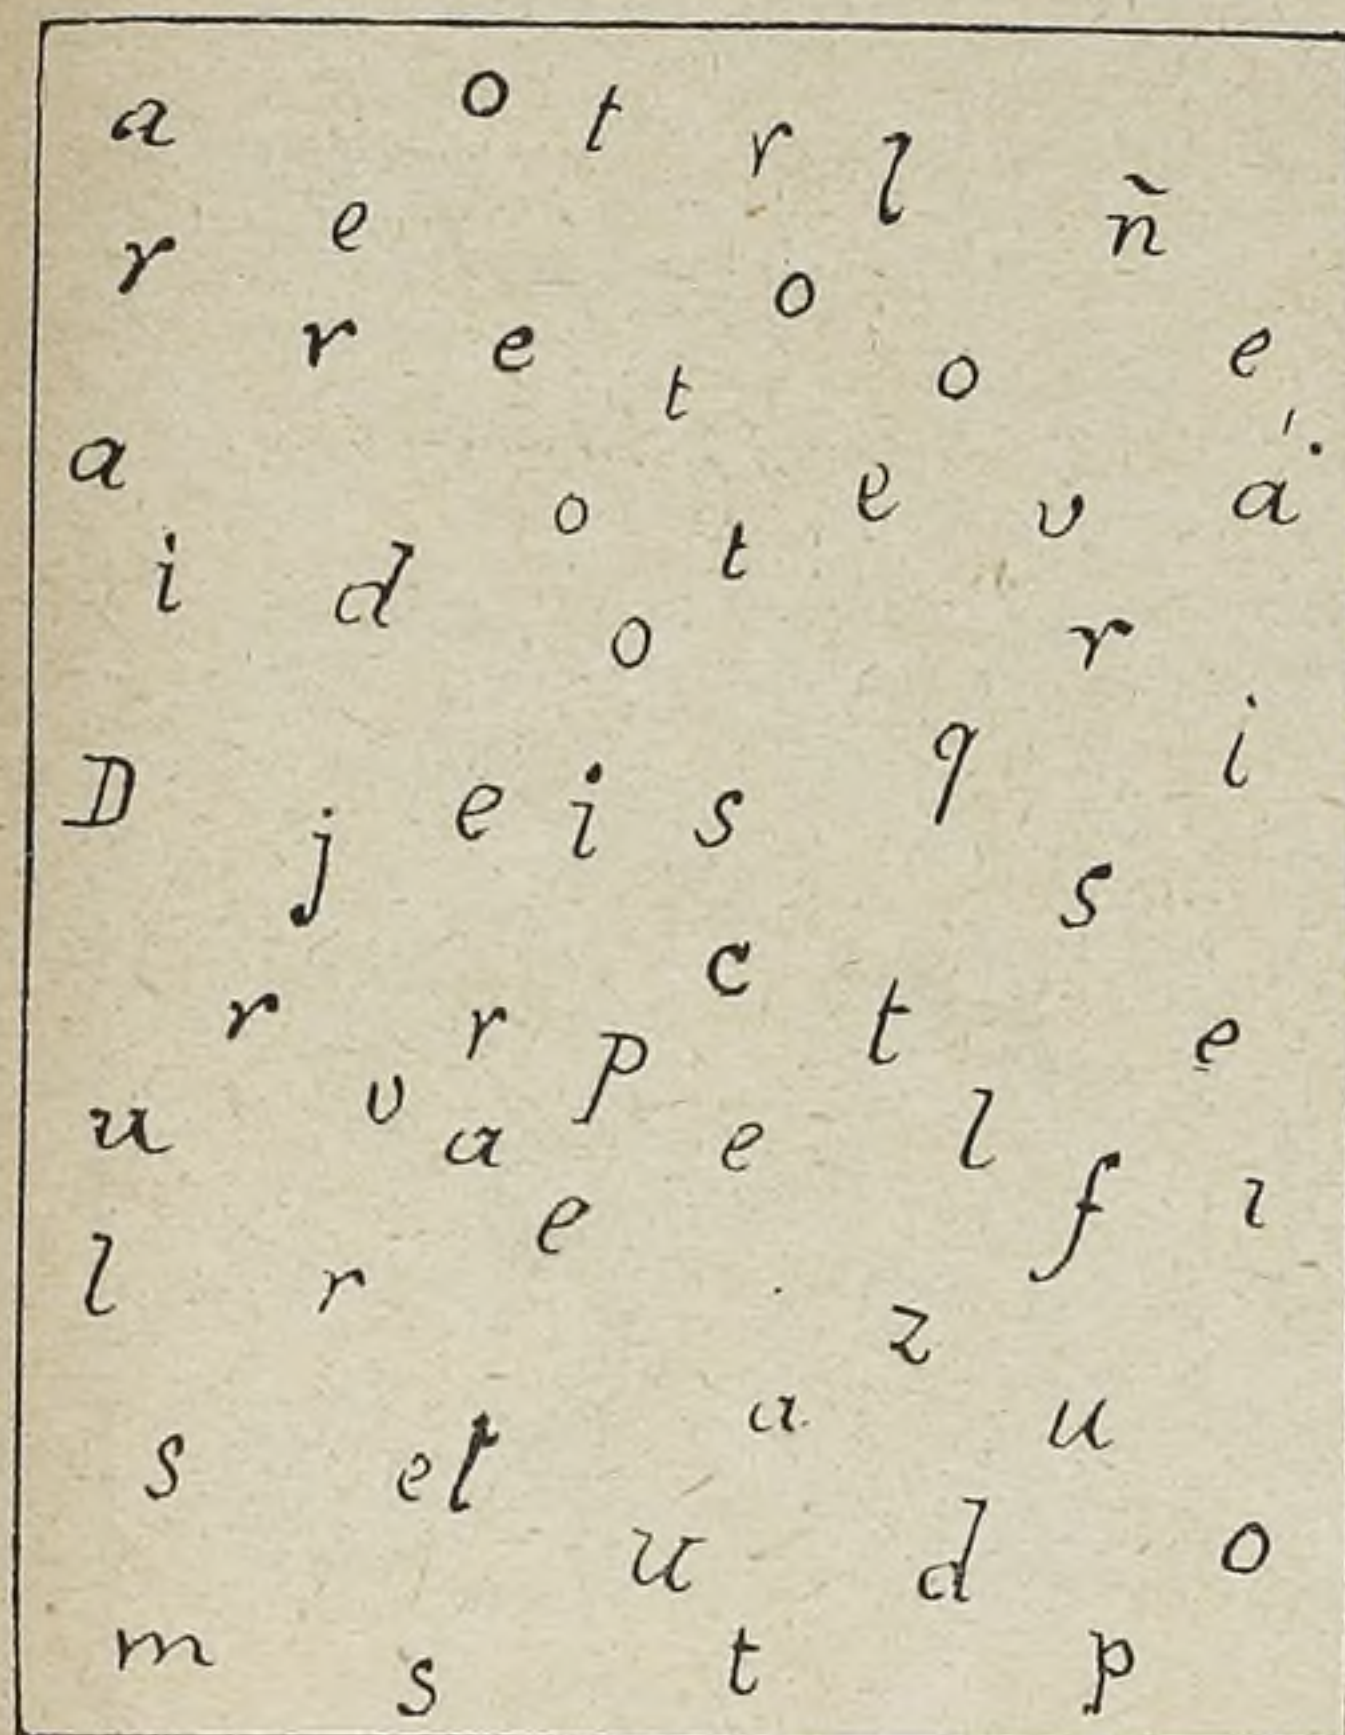 a o t r l ñ
r e o
r e t o e
a o e v á.
i d o t r
D j e i s q i
s
r r p c t e
u v a e l
l r e f ı
z
s el a u
u d o
m s t p